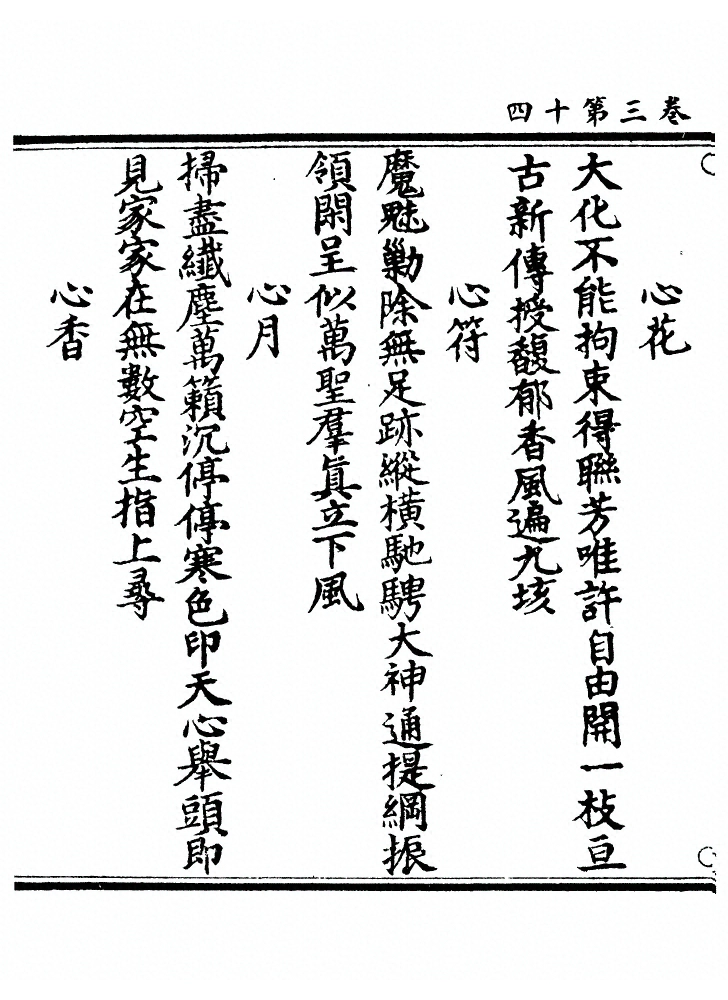 卷三第十四
心花
大化不能拘束得聮芳唯許自由開一枝亘
古新傳授馥郁香風遍九垓
心符
魔魅勦除無足跡縱橫馳騁大神通提綱振
領閑呈似萬聖羣眞立下風
心月
掃盡纖塵萬籟沉停停寒色印天心舉頭即
見家家在無數空生指上尋
心香